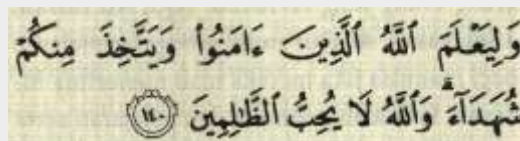 وَلِيَعْلَمَ ٱللَّهُ ٱلَّذِينَ ءَامَنُوا۟ وَيَتَّخِذَ مِنكُمْ
شُهَدَآءَ ۗ وَٱللَّهُ لَا يُحِبُّ ٱلظَّـٰلِمِينَ ١٤٠